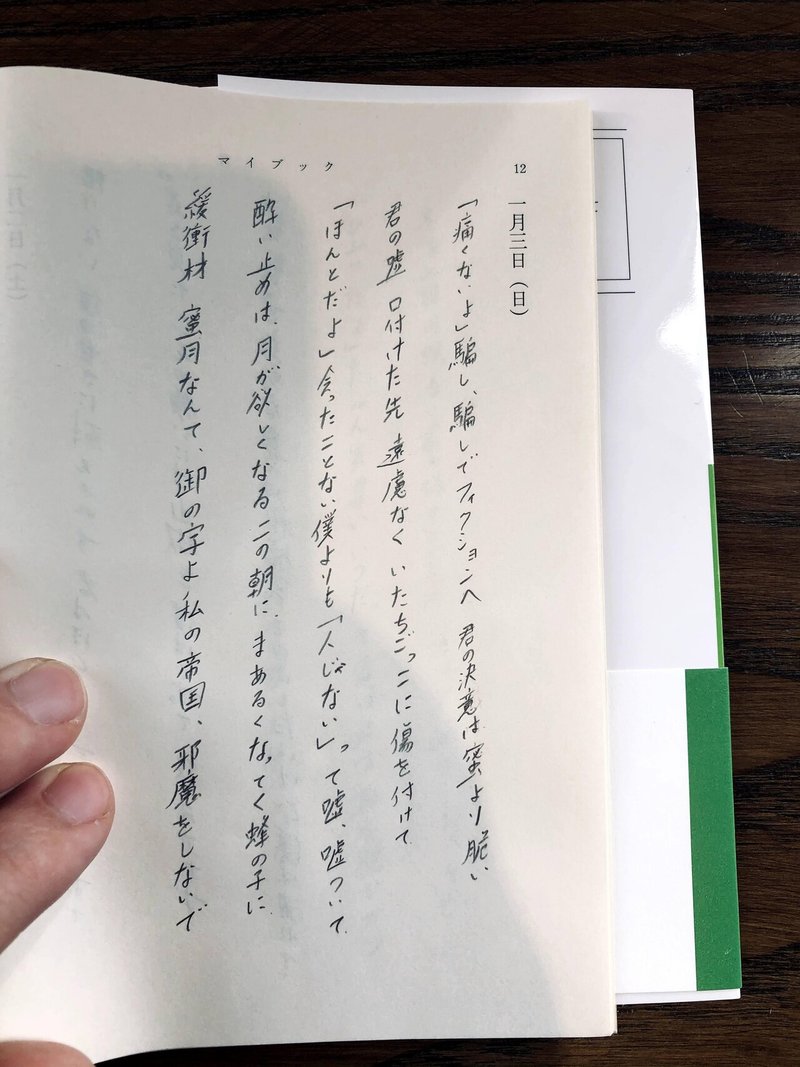 マイブック
12
一月三日(日)
「痛くないよ」騙し、騙しでフィクションへ 君の決意は蜜より脆い
君の嘘 口付けた先 遠慮なく いたちごっこに傷を付けて
「ほんとだよ」会ったことない僕よりも「人じゃない」って嘘、嘘ついて
酔い止めは、月が欲しくなるこの朝に まあるくなってく蜂の子に
緩衝材 蜜月なんて、御の字よ 私の帝国、邪魔をしないで